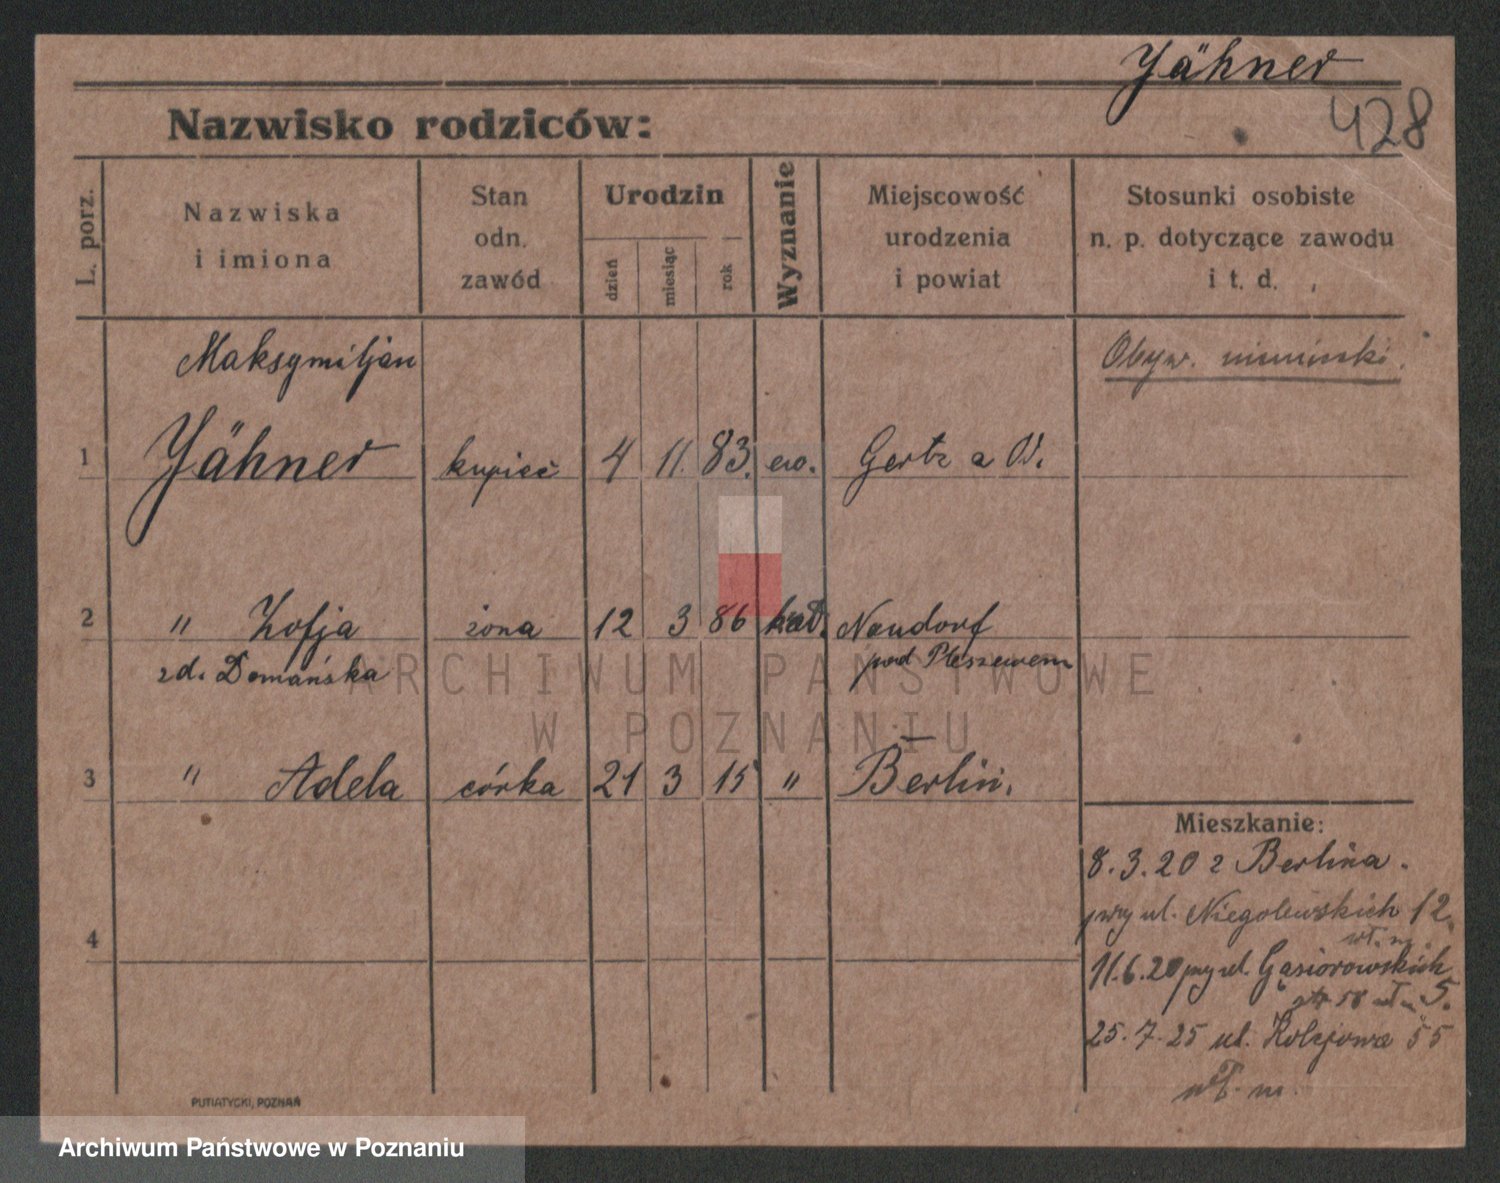 Jähner
428
Nazwisko rodziców:
L. porz.
Nazwiska
i imiona
Stan
odn.
zawód
Urodzin
dzień
miesiąc
rok
Wyznanie
Miejscowość
urodzenia
i powiat
Stosunki osobiste
n. p. dotyczące zawodu
i t. d.
Maksymiljan
Obyw. niemiecki.
1 Jähner kupiec 4 11. 83. ew. Gartz a O.
2 " Zofja żona 12 3 86 kat. Naudorf
zd. Domańska pod Pleszewem
ARCHIWUM PAŃSTWOWE
W POZNANIU
3 " Adela córka 21 3 15 " Berlin.
Mieszkanie:
8.3.20 z Berlina.
przy ul. Niegolewskich 12.
4
wł. m.
11.6.20 przy ul. Gąsiorowskich
5.
25.7.25 ul. Kolejowa 55
wł. m.
PUTIATYCKI, POZNAŃ
Archiwum Państwowe w Poznaniu